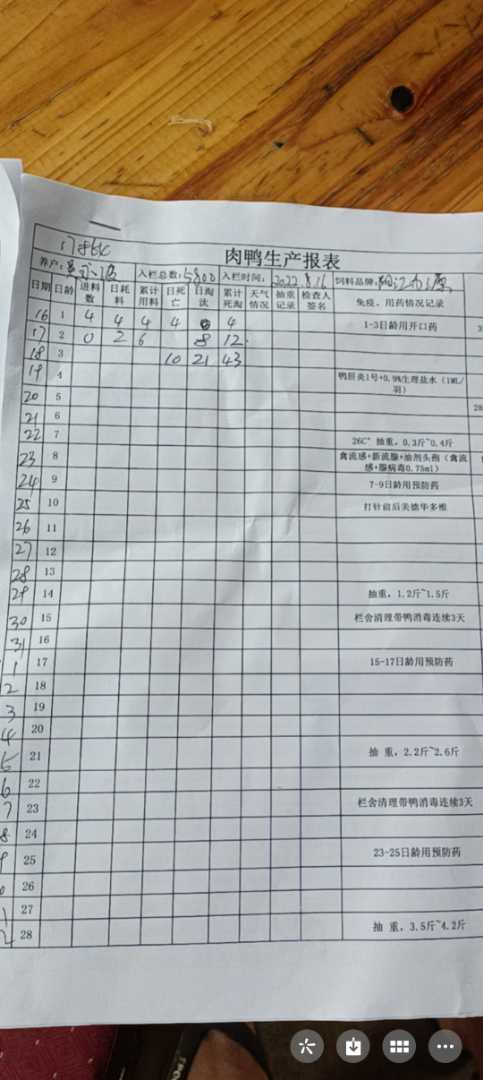 肉鸭生产报表
养户: 入栏总数:5800 入栏时间:2022.8.16 饲料品牌:阳江
日期 日龄 进料数 日耗料 累计用料 日死亡 日淘汰 累计死淘 天气情况 抽重记录 检查人签名 免疫、用药情况记录
16 1 4 4 4 4 0 4 1-3日龄用开口药
17 2 0 2 6 8 12
18 3 10 21 43
19 4 鸭肝炎1号+0.9%生理盐水(1ML/羽)
20 5
21 6
22 7 26C° 抽重,0.3斤~0.4斤
23 8 禽流感+新流腺+油剂头孢(禽流感+腺病毒0.75ml)
24 9 7-9日龄用预防药
25 10 打针前后美德华多维
26 11
27 12
28 13
29 14 抽重,1.2斤~1.5斤
30 15 栏舍清理带鸭消毒连续3天
31 16
1 17 15-17日龄用预防药
2 18
3 19
4 20
5 21 抽 重,2.2斤~2.6斤
6 22
7 23 栏舍清理带鸭消毒连续3天
8 24
9 25 23-25日龄用预防药
26
1 27
2 28 抽 重,3.5斤~4.2斤